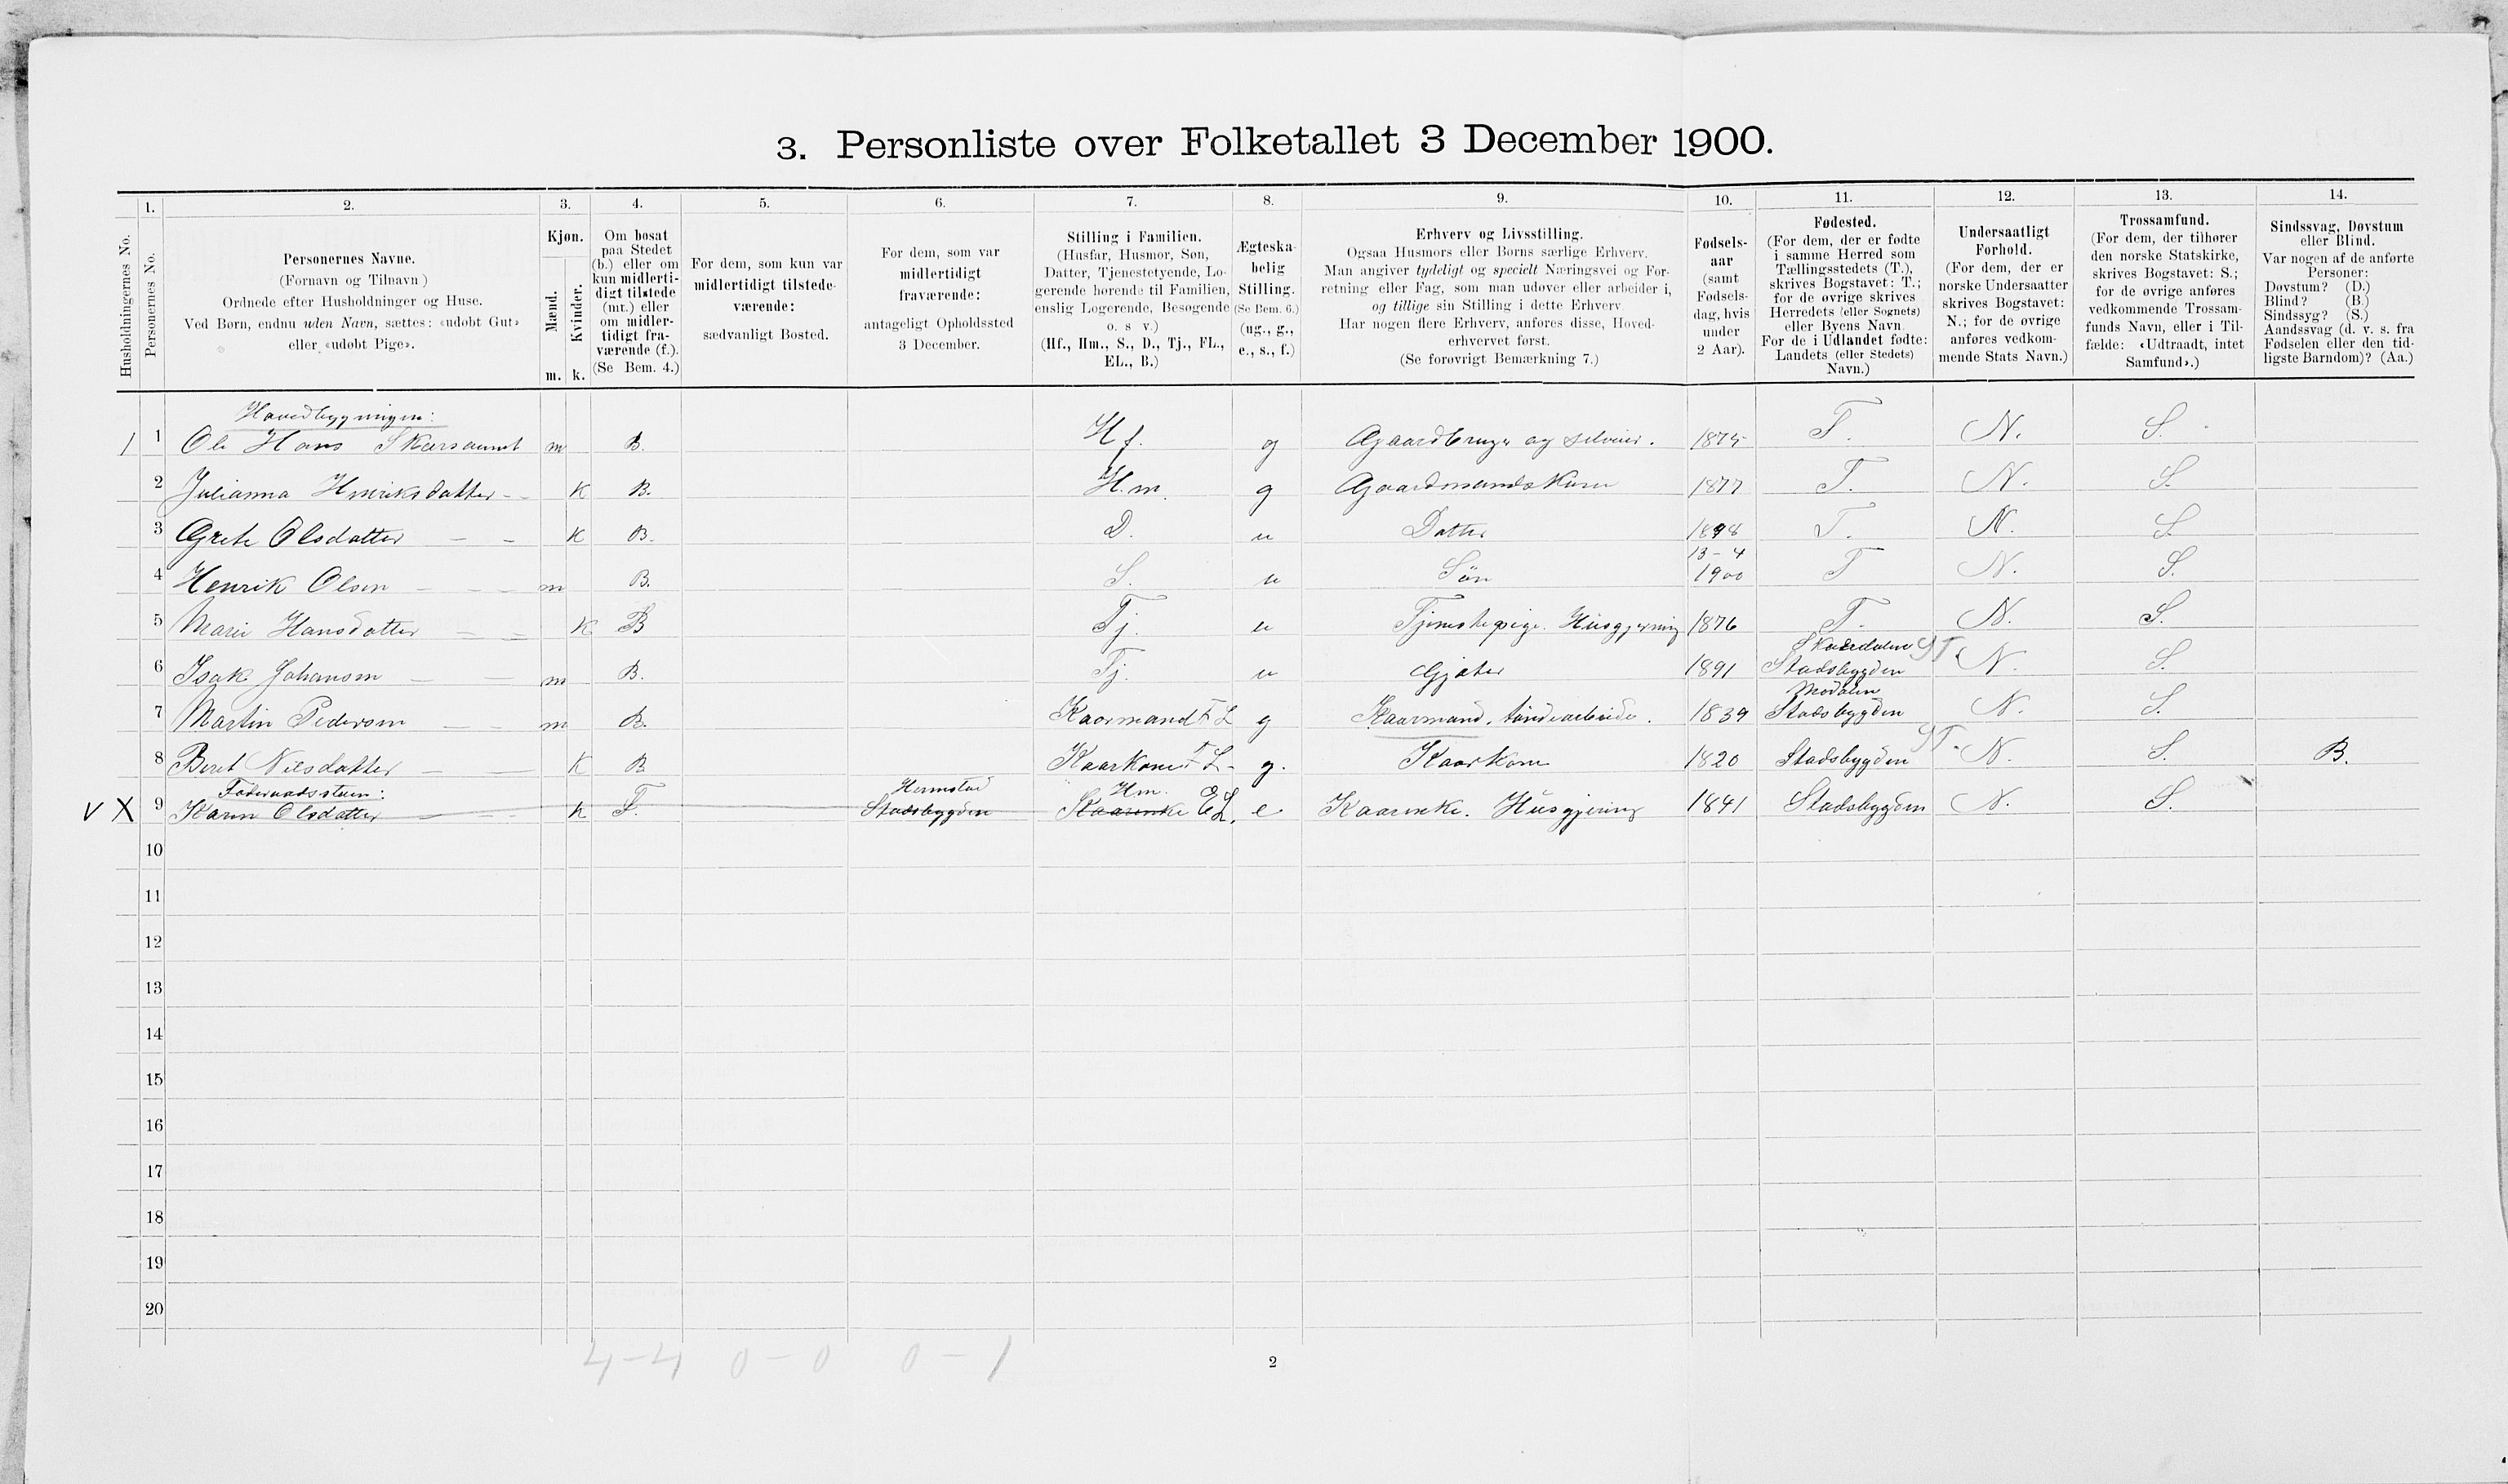 3. Personliste over Folketallet 3 December 1900.
Husholdningernes No.
1.
Personernes No.
2.
Personernes Navne.
(Fornavn og Tilnavn)
Ordnede efter Husholdninger og Huse.
Ved Børn, endnu uden Navn, sættes: «udøbt Gut»
eller «udøbt Pige».
3.
Kjøn.
Mænd.
Kvinder.
m. k.
4.
Om bosat
paa Stedet
(b.) eller om
kun midlerti-
digt tilstede
(mt.) eller
om midler-
tidigt fra-
værende (f.).
(Se Bem. 4.)
5.
For dem, som kun var
midlertidigt tilstede-
værende:
sædvanligt Bosted.
6.
For dem, som var
midlertidigt
fraværende:
antageligt Opholdssted
3 December.
7.
Stilling i Familien.
(Husfar, Husmor, Søn,
Datter, Tjenestetyende, Lo-
gerende hørende til Familien,
enslig Logerende, Besøgende
o. s v.)
(Hf., Hm., S., D., Tj., FL.,
EL., B.)
8.
Ægteska-
belig
Stilling.
(Se Bem. 6.)
(ug., g.,
e., s., f.)
9.
Erhverv og Livsstilling.
Ogsaa Husmors eller Børns særlige Erhverv.
Man angiver tydeligt og specielt Næringsvei og For-
retning eller Fag, som man udøver eller arbeider i,
og tillige sin Stilling i dette Erhverv.
Har nogen flere Erhverv, anføres disse, Hoved-
erhvervet først.
(Se forøvrigt Bemærkning 7.)
10.
Fødsels-
aar
(samt
Fødsels-
dag, hvis
under
2 Aar).
11.
Fødested.
(For dem, der er fødte
i samme Herred som
Tællingsstedets (T.),
skrives Bogstavet: T.;
for de øvrige skrives
Herredets (eller Sognets)
eller Byens Navn.
For de i Udlandet fødte:
Landets (eller Stedets)
Navn.)
12.
Undersaatligt
Forhold.
(For dem, der er
norske Undersaatter
skrives Bogstavet:
N.; for de øvrige
anføres vedkom-
mende Stats Navn.)
13.
Trossamfund.
(For dem, der tilhører
den norske Statskirke,
skrives Bogstavet: S.;
for de øvrige anføres
vedkommende Trossam-
funds Navn, eller i Til-
fælde: «Udtraadt, intet
Samfund».)
14.
Sindssvag, Døvstum
eller Blind.
Var nogen af de anførte
Personer:
Døvstum? (D.)
Blind? (B.)
Sindssyg? (S.)
Aandssvag (d. v. s. fra
Fødselen eller den tid-
ligste Barndom)? (Aa.)
Hovedbygningen:
1 1 Ole Hans Skarsaunet m B. Hf. g Gaardbruger og selveier. 1875 T. N. S.
2 Julianna Henriksdatter - - K B. H.m. g Gaardmandskone 1877 T. N. S.
3 Grete Olsdatter - - K B. D. u Datter 1898 T. N. S.
13-4
4 Henrik Olsen - - - m B. S. u Søn 1900 T N. S.
5 Marie Hansdatter - - K B Tj. u Tjenestepige. Husgjerning 1876 T. N. S.
6 Isak Johansen - - m B. Tj. u Gjæter 1891 Stadsbygden N. S.
Modalen
7 Martin Pedersen - - m B. Kaarmand FL g Kaarmand, tøndearbeider. 1839 Stadsbygden N. S.
8 Beret Nilsdatter - - K B Kaarkone FL - g. Kaarkone 1820 Stadsbygden N. S. B.
Føderaadsstuen: Hermstad Hm.
V X 9 Karen Olsdatter k F. Stadsbygden Kaarenke EL. e Kaarenke. Husgjerning 1841 Stadsbygden N. S.
10
11
12
13
14
15
16
17
18
19
20
4-4 0-0 0-1
2